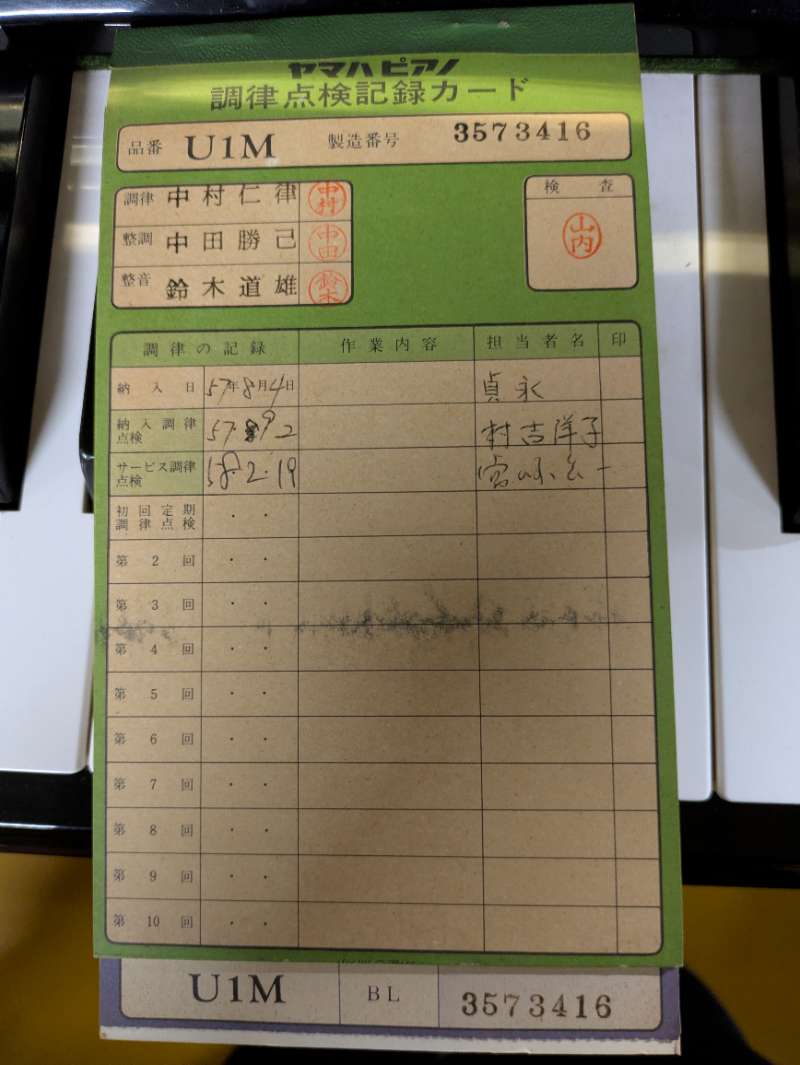 ヤマハピアノ
調律点検記録カード
品番 U1M 製造番号 3573416
調律 中村仁律 中村
整調 中田勝己 中田
整音 鈴木道雄 鈴木
検査
山内
調律の記録 作業内容 担当者名 印
納入日 57年8月4日 貞永
納入調律点検 57 9 2 村吉洋子
サービス調律点検 58.2.19
初回定期調律点検 ・ ・
第2回 ・ ・
第3回 ・ ・
第4回 ・ ・
第5回 ・ ・
第6回 ・ ・
第7回 ・ ・
第8回 ・ ・
第9回 ・ ・
第10回 ・ ・
U1M BL 3573416